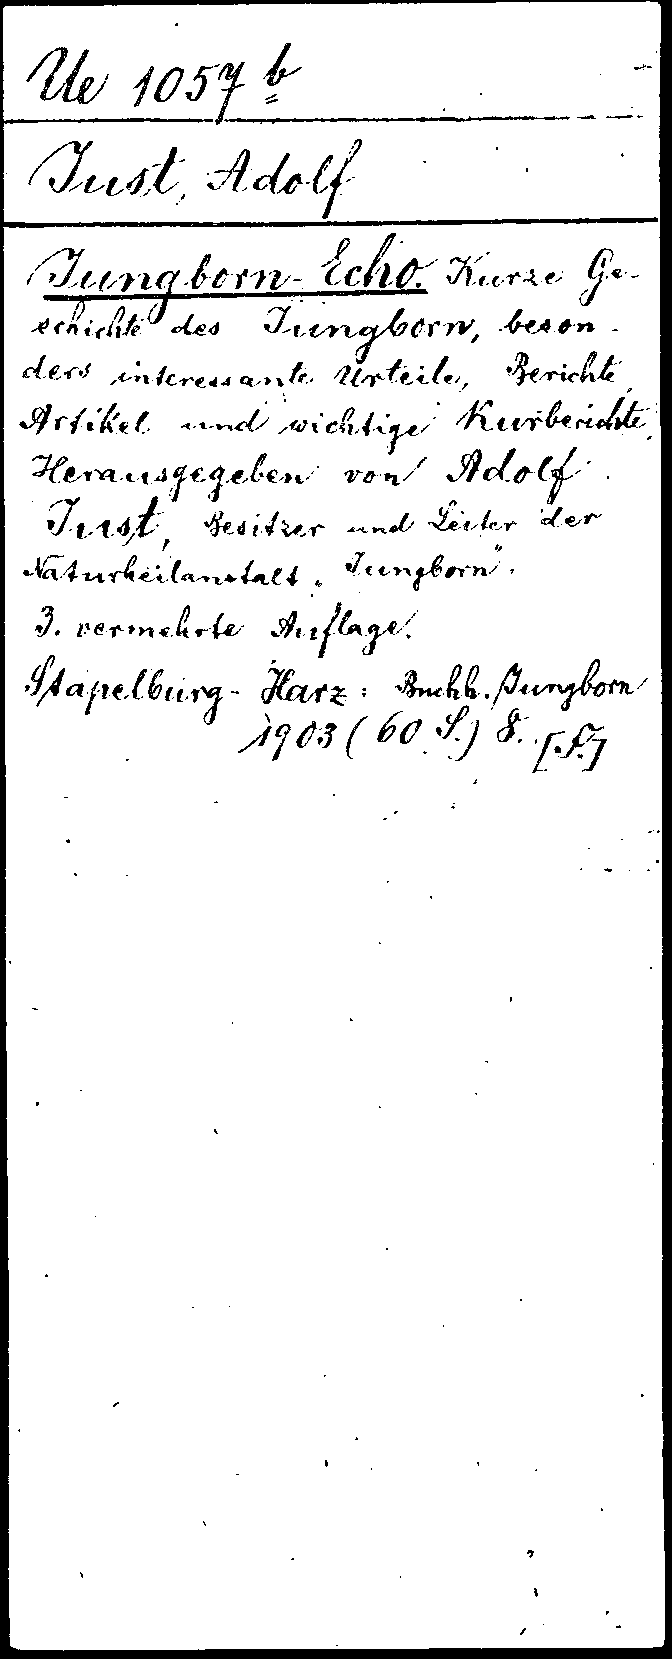 Ue 1057 b
Just, Adolf
Jungborn-Echo. Kurze Ge-
schichte des Jungborn, beson-
ders interessante Urteile, Berichte,
Artikel und wichtige Kurberichte.
Herausgegeben von Adolf
Just, Besitzer und Leiter der
Naturheilanstalt „Jungborn".
3. vermehrte Auflage.
Stapelburg-Harz: Buchh. Jungborn
1903 (60 S.) 8. [F.]